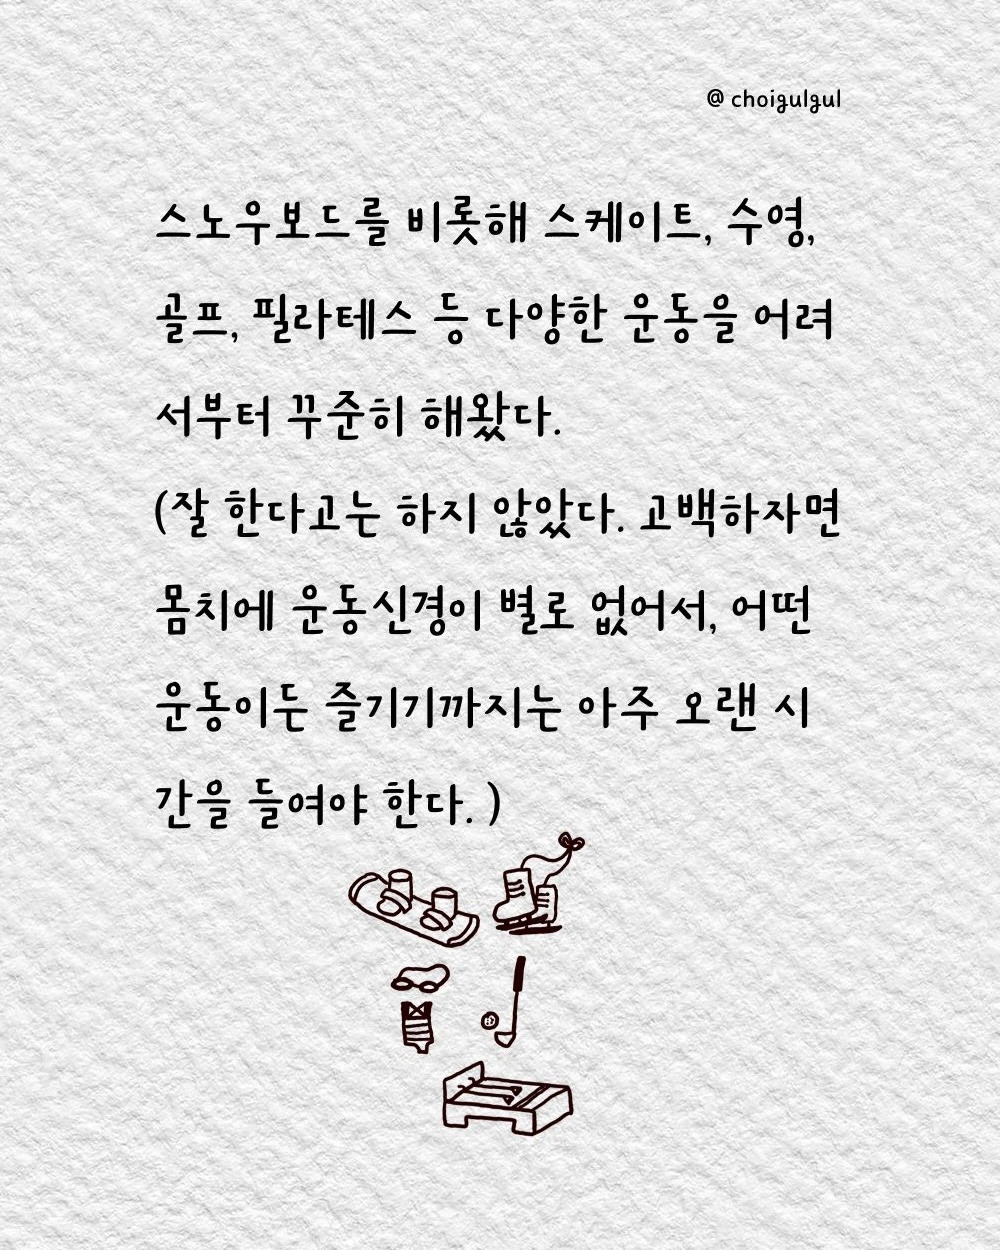 @ choigulgul
스노우보드를 비롯해 스케이트, 수영,
골프, 필라테스 등 다양한 운동을 어려
서부터 꾸준히 해왔다.
(잘 한다고는 하지 않았다. 고백하자면
몸치에 운동신경이 별로 없어서, 어떤
운동이든 즐기기까지는 아주 오랜 시
간을 들여야 한다. )